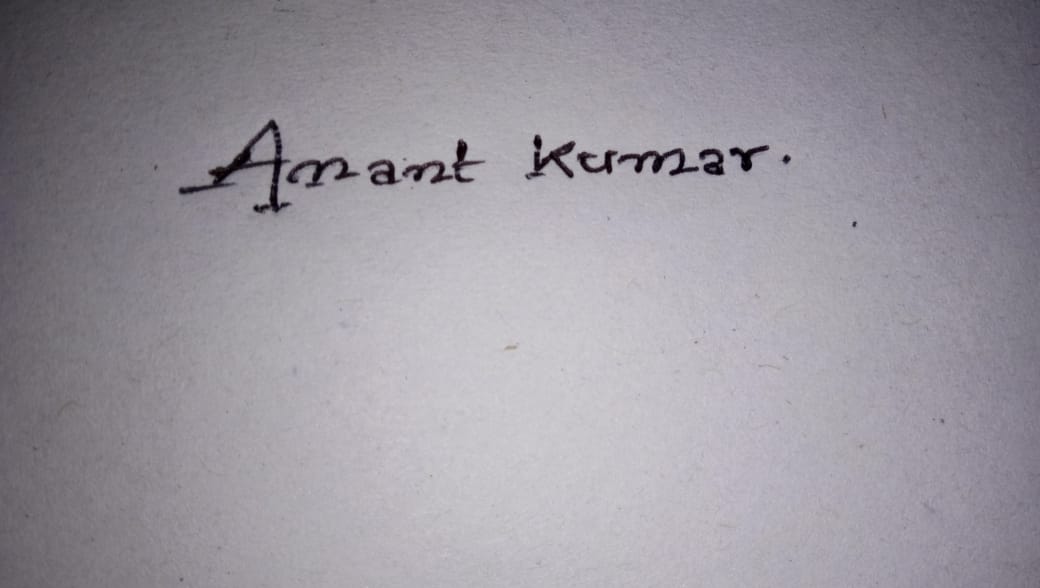 Anant Kumar.